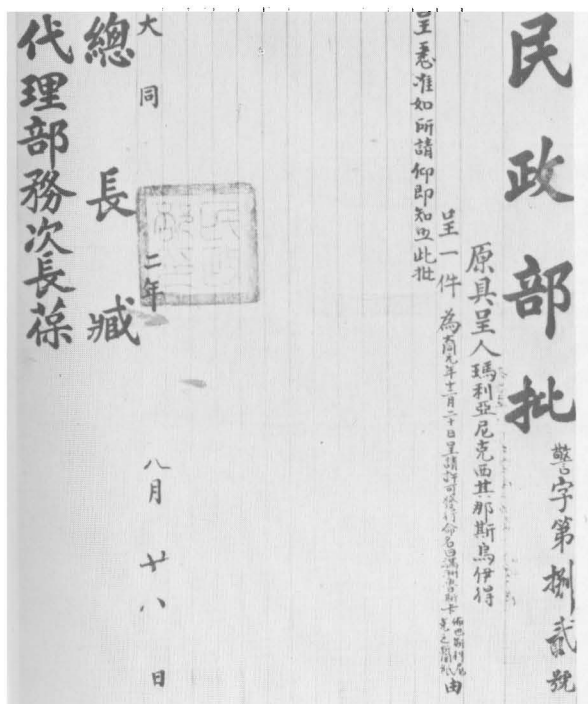 民政部批
警字第捌貳號
原具呈人瑪利亞尼克西其那斯烏伊得
呈一件為大同元年十二月二十日呈請許可發行命名曰滿洲由
呈悉准如所請仰即知照此批
大同二年八月廿八日
總長臧
代理部務次長葆